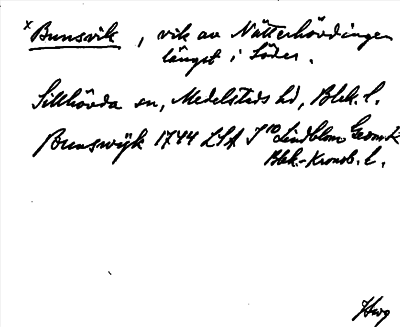 x Bunsvik, vik av Nätterhövdingen
längst i Söder.
Sillhövda sn, Medelsteds hd, Blek. l.
Bunswijk 1744 LSA S10 Lindblom Geom.k
Blek.-Kronob. l.